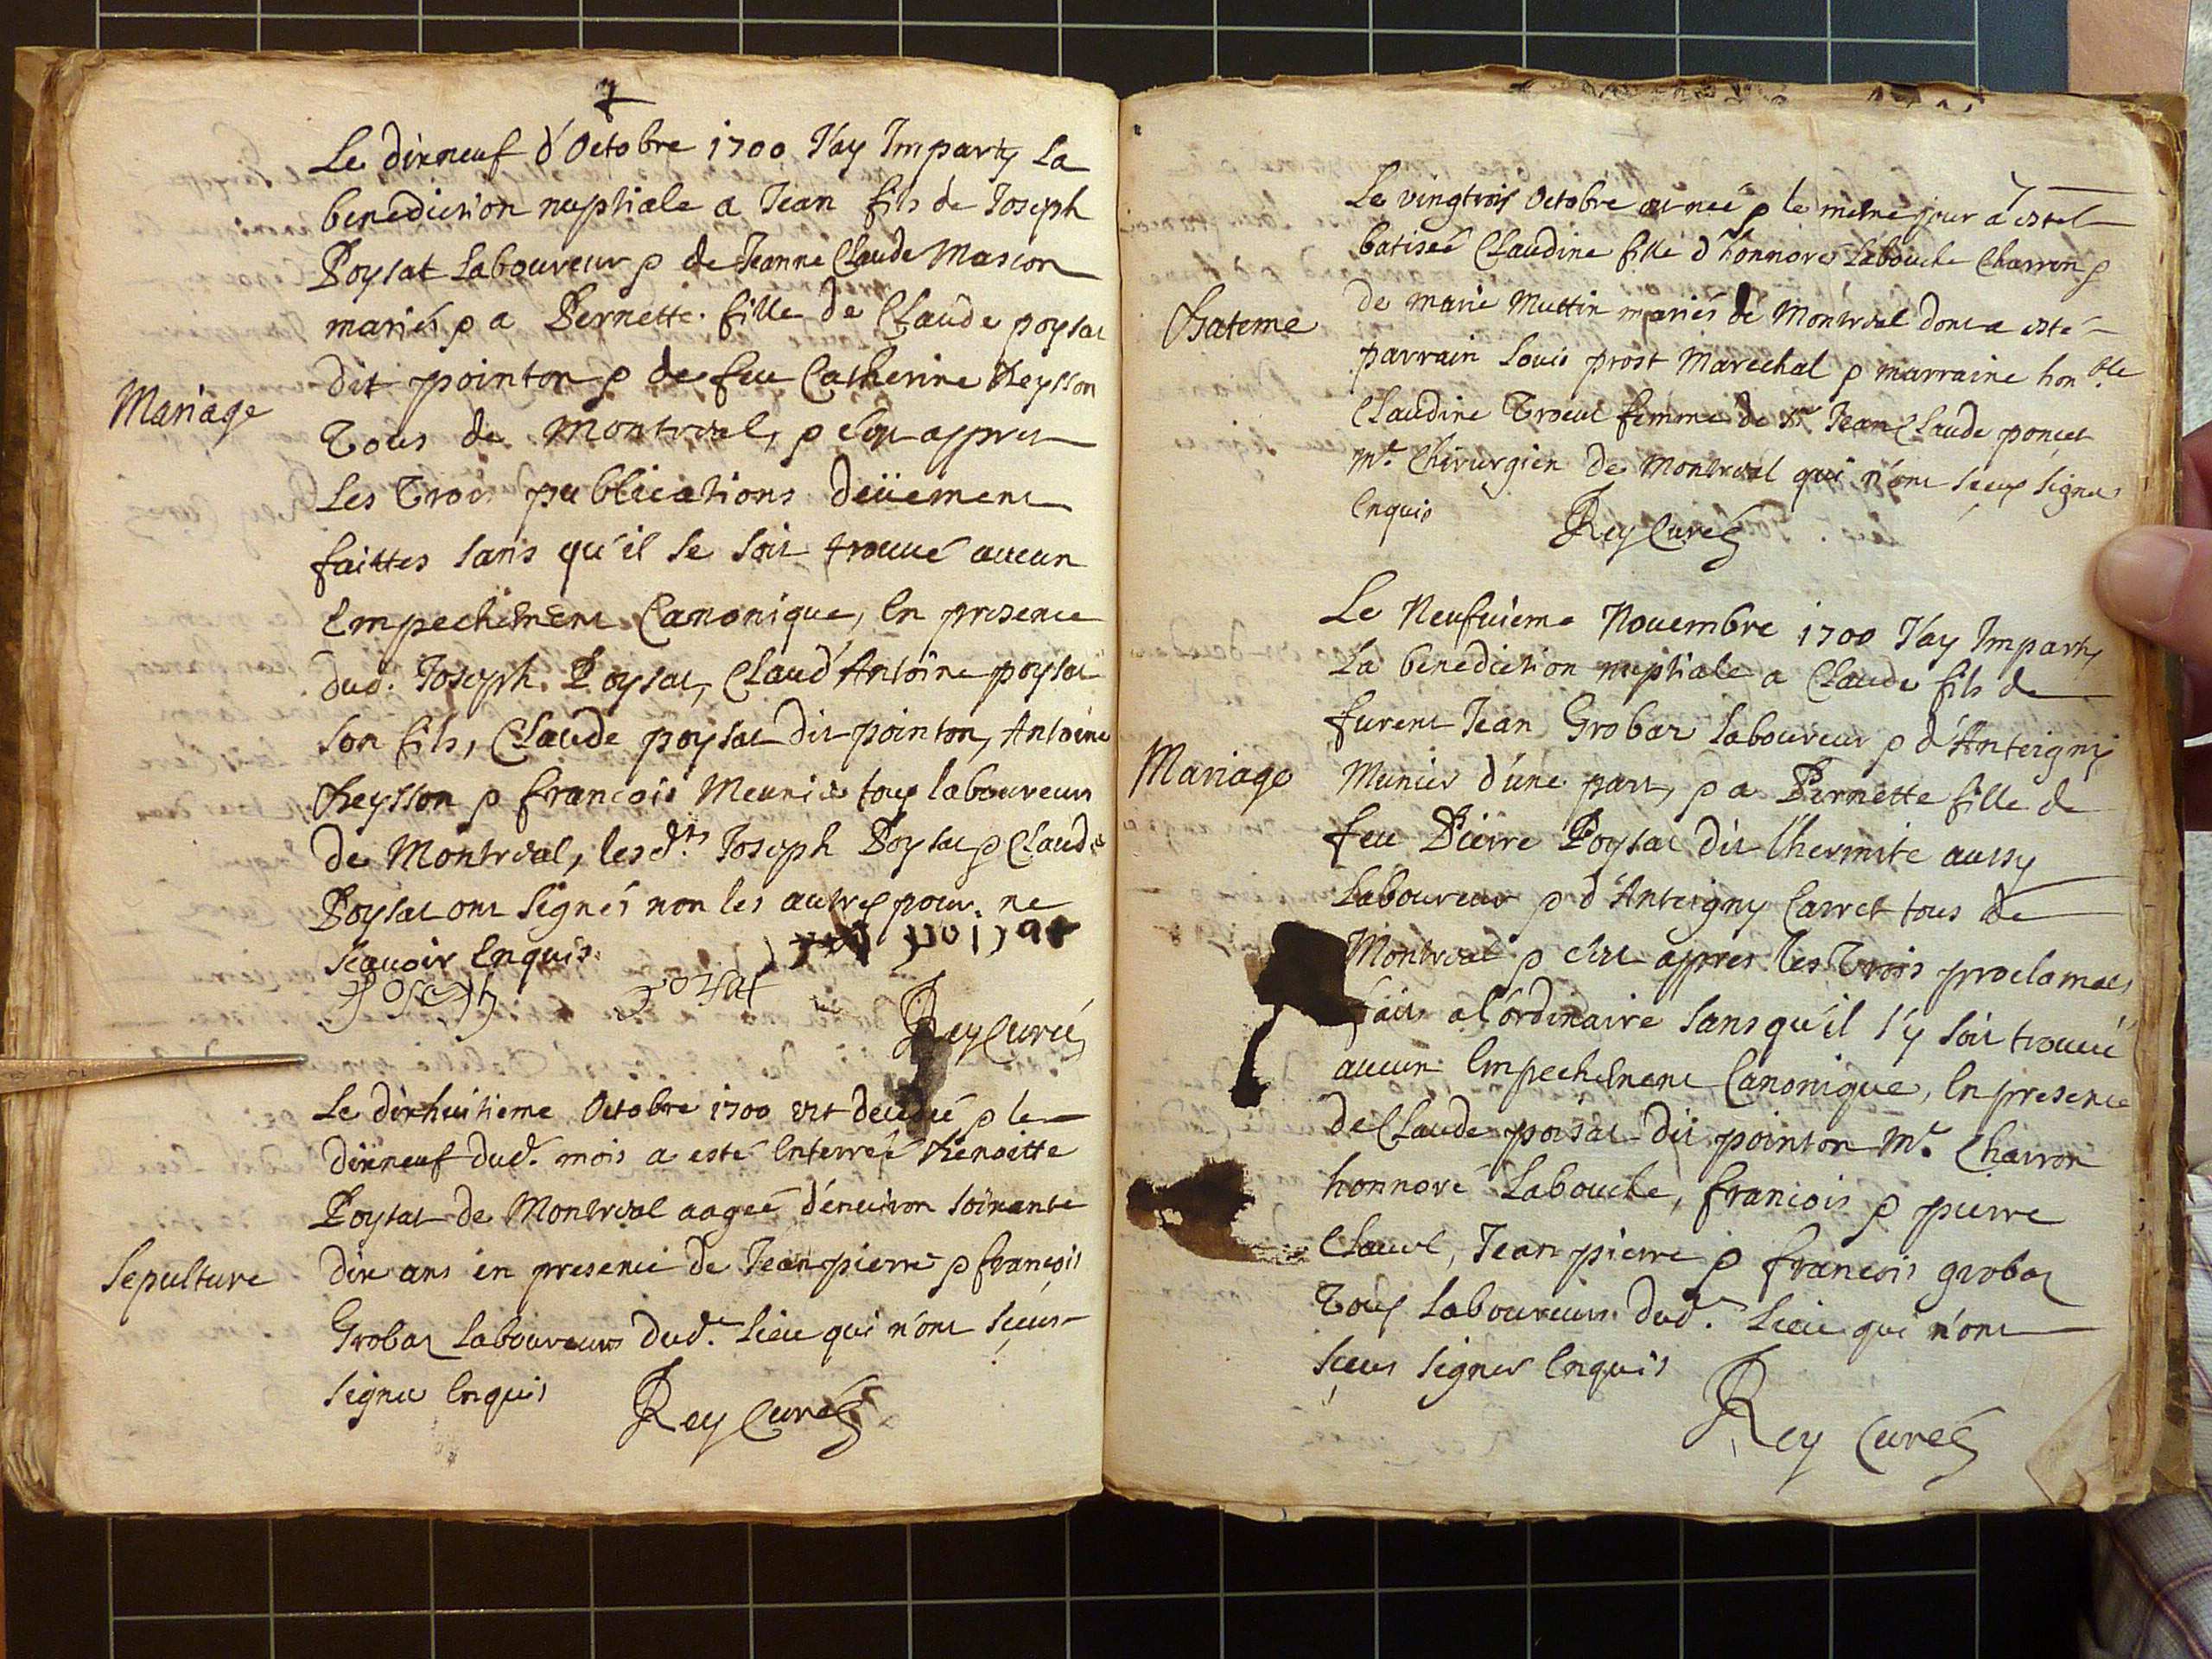 Le dixneuf d'Octobre 1700 J'ay Imparty La
benediction nuptiale a Jean fils de Joseph
Poysat Laboureur & de Jeanne Claude Masson
mariés & a Pernette fille de Claude poysat
dit pointon & de feu Catherine Reysson
Mariage
Tous de Montreal, & ce appres
Les Trois publications deüement
faittes sans qu'il se soit trouvé aucun
Empechement Canonique, En presence
dud. Joseph Poysat, Claud'Antoine poysat
son fils, Claude poysat dit pointon, Antoine
Reysson & francois Meunier tous laboureurs
de Montreal, les d.ts Joseph Poysat & Claude
Poysat ont signés non les autres pour ne
scavoir Enquis.
Joseph Poysat
Rey Curé
Le dixhuitieme Octobre 1700 est decedé & le
dixneuf dud. mois a esté Enterreé Benoitte
Poysat de Montreal aageé d'environ soixante
Sepulture
dix ans en presence de Jean pierre & francois
Grobas Laboureurs dud. Lieu qui n'ont sceus
signer Enquis
Rey Curé
Le vingtrois Octobre est neé & le méme jour a esté
batiseé Claudine fille d'honnoré Labouche Charron &
Bateme
de marie Muttin mariés de Montreal dont a esté
parrain Louis prost Marechal & marraine hon.ble
Claudine femme de Sr Jean Claude poncet
Mr. Chirurgien de Montreal qui n'ont sceus signer
Enquis
Rey Curé
Le Neufvieme Novembre 1700 J'ay Imparty
La benediction nuptiale a Claude fils de
furent Jean Grobas Laboureur & d'Anteigny
Mariage
Munier d'une part, & a Pernette fille de
feu Pierre Poysat dit l'hermite aussy
Laboureur & d'Anteigny Carret tous de
Montreal & ce appres les Trois proclamaõs
faites a l'ordinaire sans qu'il s'y soit trouvé
aucun Empechement Canonique, En presence
de Claude poisat dit pointon Mr. Charron
honnoré Labouche, francois & pierre
Jean pierre & francois grobas
Tous Laboureurs dud. Lieu qui n'ont
sceus signer Enquis
Rey Curé